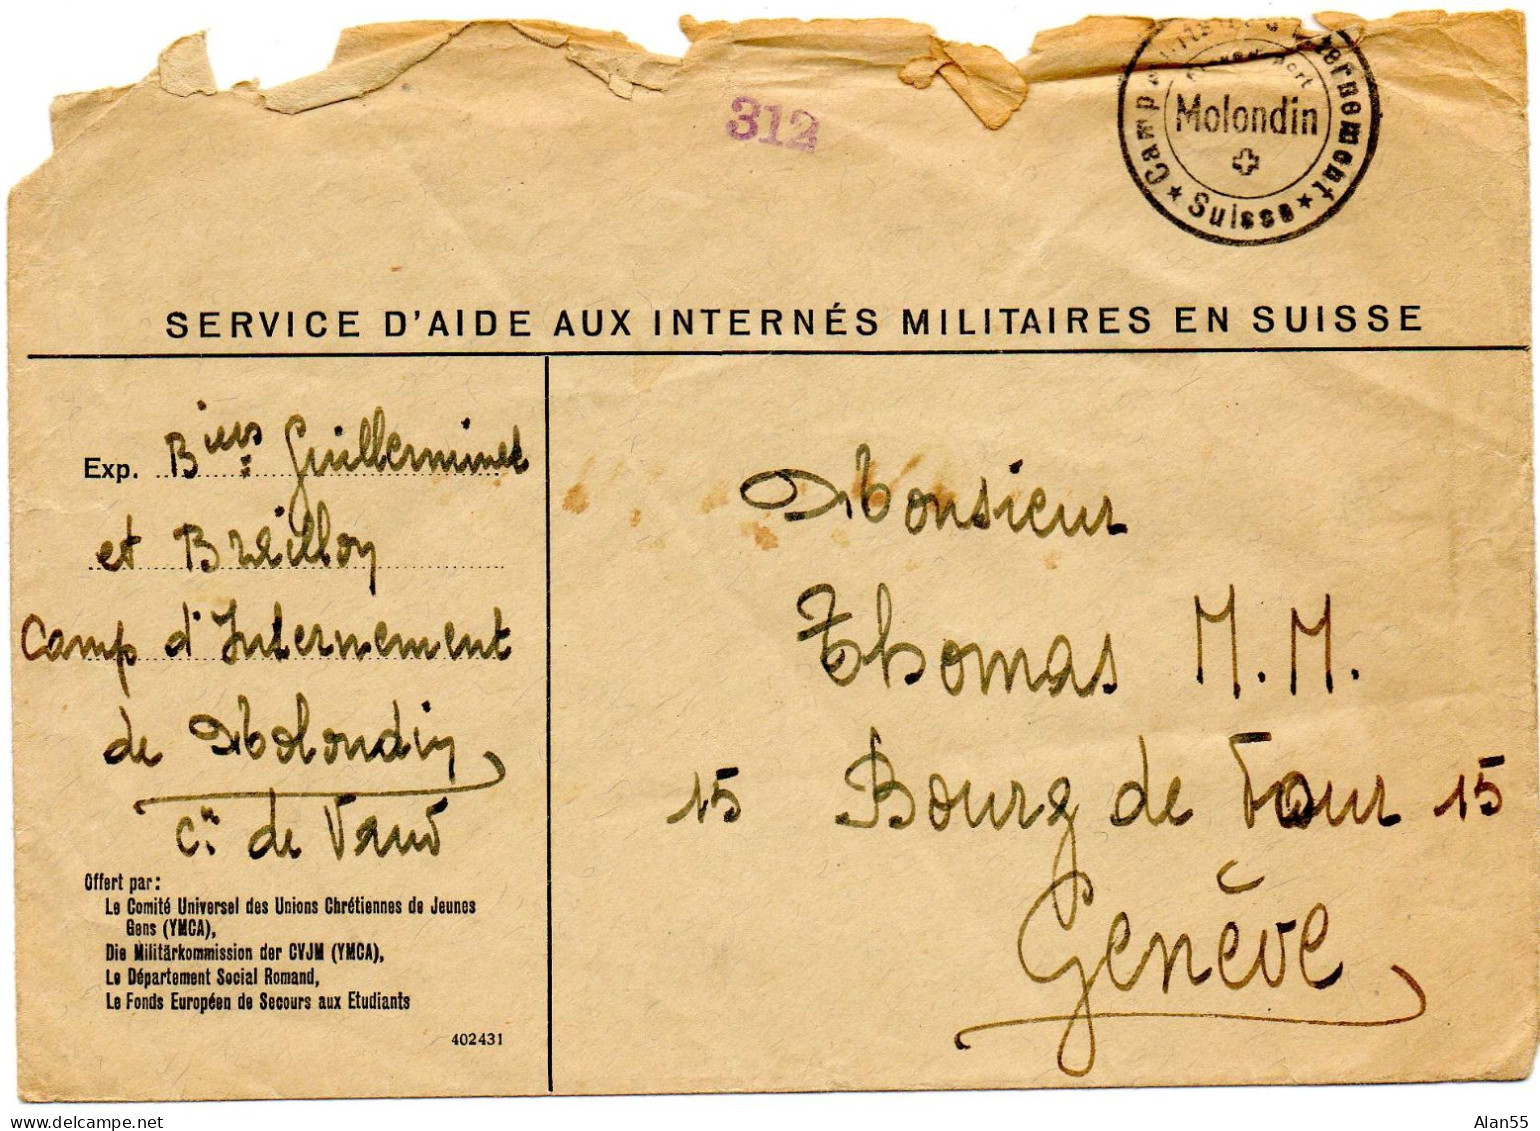 312
Camp militaire d'internement
Franc de port
Molondin
★ Suisse ★
SERVICE D'AIDE AUX INTERNÉS MILITAIRES EN SUISSE
Exp. Biers Guilleminet
et Bréilloy
Camp d'Internement
de Molondin
Cn. de Vaud
Offert par:
Le Comité Universel des Unions Chrétiennes de Jeunes
Gens (YMCA),
Die Militärkommission der CVJM (YMCA),
Le Département Social Romand,
Le Fonds Européen de Secours aux Etudiants
402431
Monsieur
Thomas M. M.
15 Bourg de Four 15
Genève
Alan55
delcampe.net